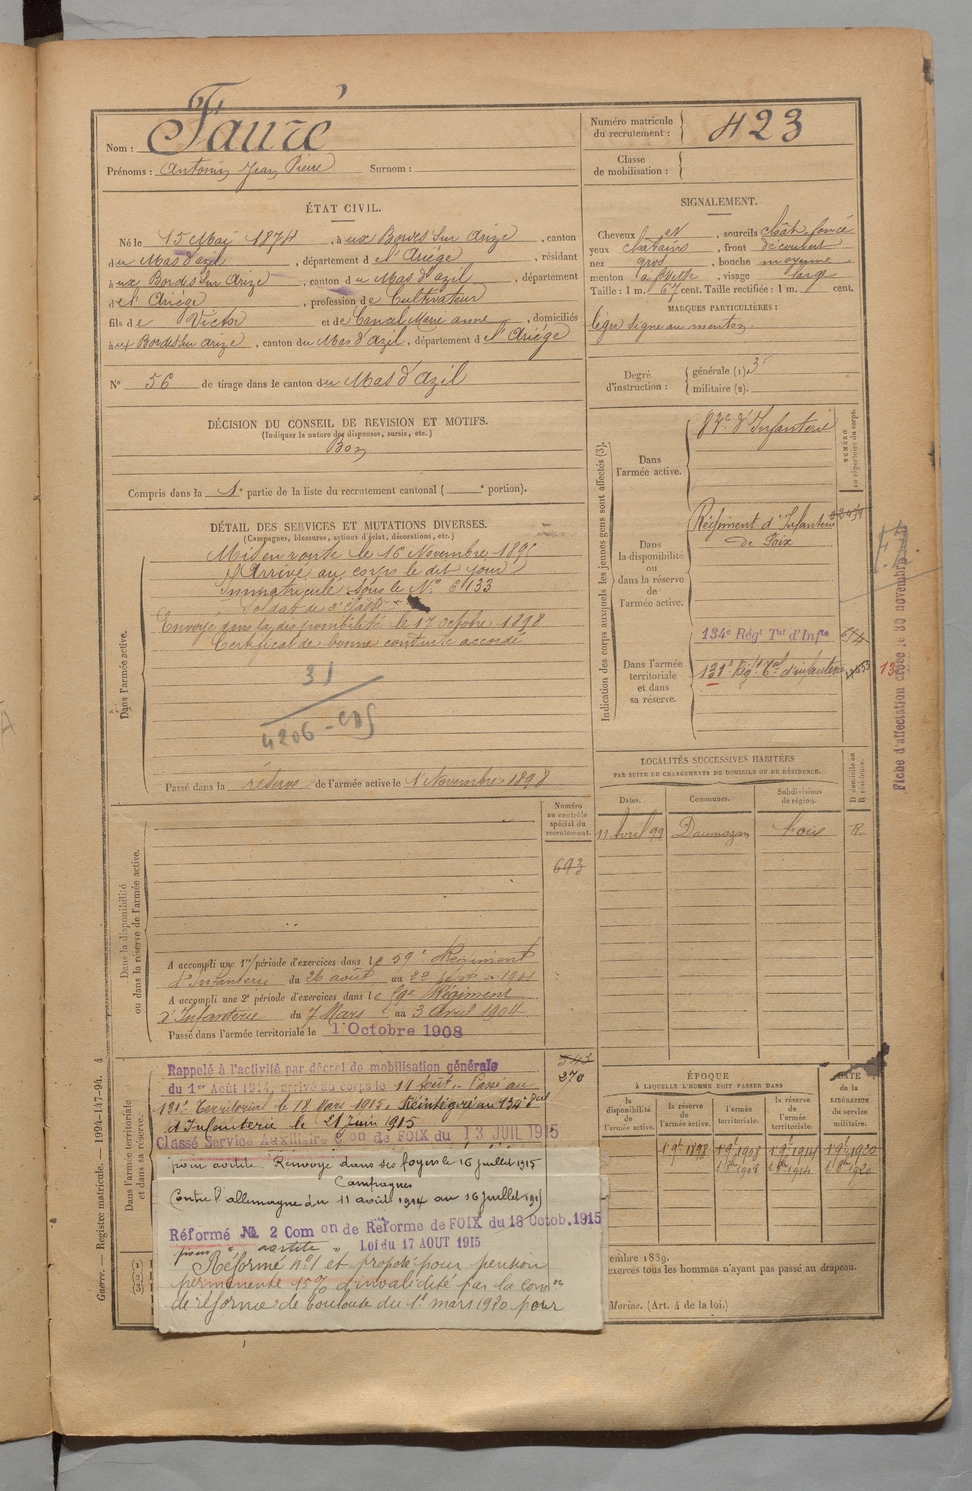 Nom : Faure
Prénoms : Antonin Jean Pierre Surnom :
Numéro matricule du recrutement : 423
Classe de mobilisation :
ÉTAT CIVIL.
Né le 15 Mai 1874, à ux Bordes Sur Arize, canton
du Mas d'azil, département de l'Ariége, résidant
à ux Bordes Sur Arize, canton du Mas d'azil, département
de l'Ariége, profession de Cultivateur
fils de Victor et de Cancel Marie anne, domiciliés
à ux Bordes Sur Arize, canton du Mas d'azil, département de l'Ariége
N° 56 de tirage dans le canton du Mas d'Azil
SIGNALEMENT.
Cheveux et, sourcils chât. foncé
yeux chatains, front découvert
nez gros, bouche moyenne
menton à fossette, visage large
Taille : 1 m. 67 cent. Taille rectifiée : 1 m. cent.
MARQUES PARTICULIÈRES :
léger signe au menton
Degré d'instruction : générale (1). 3
militaire (2).
DÉCISION DU CONSEIL DE REVISION ET MOTIFS.
(Indiquer la nature des dispenses, sursis, etc.)
Bon
Compris dans la 1e partie de la liste du recrutement cantonal ( e portion).
DÉTAIL DES SERVICES ET MUTATIONS DIVERSES.
(Campagnes, blessures, actions d'éclat, décorations, etc.)
Dans l'armée active.
Mis en route le 16 Novembre 1895
Arrivé au corps le dit jour
Immatriculé sous le N° 6133
Soldat de 2e classe
Envoyé dans la disponibilité le 17 octobre 1898
Certificat de bonne conduite accordé
31
4206 -
Passé dans la réserve de l'armée active le 1 Novembre 1898
Indication des corps auxquels les jeunes gens sont affectés (3).
NUMÉRO au répertoire du corps.
Dans l'armée active.
d'Infanterie
Dans la disponibilité ou dans la réserve de l'armée active.
Régiment d'Infanterie
de Foix
Dans l'armée territoriale et dans sa réserve.
134e Régt Tal d'Infie
131e Régt Tal d'infanterie
Fiche d'affectation créée le 30 novembre
LOCALITÉS SUCCESSIVES HABITÉES
PAR SUITE DE CHANGEMENTS DE DOMICILE OU DE RÉSIDENCE.
Dates. Communes. Subdivisions de région. D domicile ou R résidence.
11 Avril 99 Daumazan Foix R
Dans la disponibilité ou dans la réserve de l'armée active.
Numéro au contrôle spécial du recrutement.
693
A accompli une 1re période d'exercices dans le 59e Régiment
d'Infanterie du 26 août au 22 1901
A accompli une 2e période d'exercices dans le 59e Régiment
d'Infanterie du 7 Mars au 3 Avril 1904
Passé dans l'armée territoriale le 1 Octobre 1908
Dans l'armée territoriale et dans sa réserve.
343
270
Rappelé à l'activité par décret de mobilisation générale
du 1er Août 1914, arrivé au corps le 11 Août. Passé au
131e Territorial le 18 Mars 1915. Réintégré au 134e Tal
d'Infanterie le 21 juin 1915
Classé Service Auxiliaire Con de FOIX du 13 JUIL 1915
pour otite. Renvoyé dans ses foyers le 16 juillet 1915
Campagnes
Contre l'allemagne du 11 août 1914 au 16 juillet 1915
Réformé No. 2 Com on de Réforme de FOIX du 18 Octob. 1915
pour otite Loi du 17 AOUT 1915
Réformé n°1 et proposé pour pension
permanente 15% d'invalidité par la comon
de réforme de Toulouse du 1er mars 1920 pour
ÉPOQUE
À LAQUELLE L'HOMME DOIT PASSER DANS
DATE de la LIBÉRATION du service militaire.
la disponibilité de l'armée active. la réserve de l'armée active. l'armée territoriale. la réserve de l'armée territoriale.
1 9e 1898 1 9e 1908 1 9e 1914 1 9e 1920
1 8bre 1908 1 8bre 1914 1 8bre 1920
embre 1889.
exercés tous les hommes n'ayant pas passé au drapeau.
Marine. (Art. 4 de la loi.)
Guerre. — Registre matricule. — 1994-147-94. 4
(1)
(2)
(3)